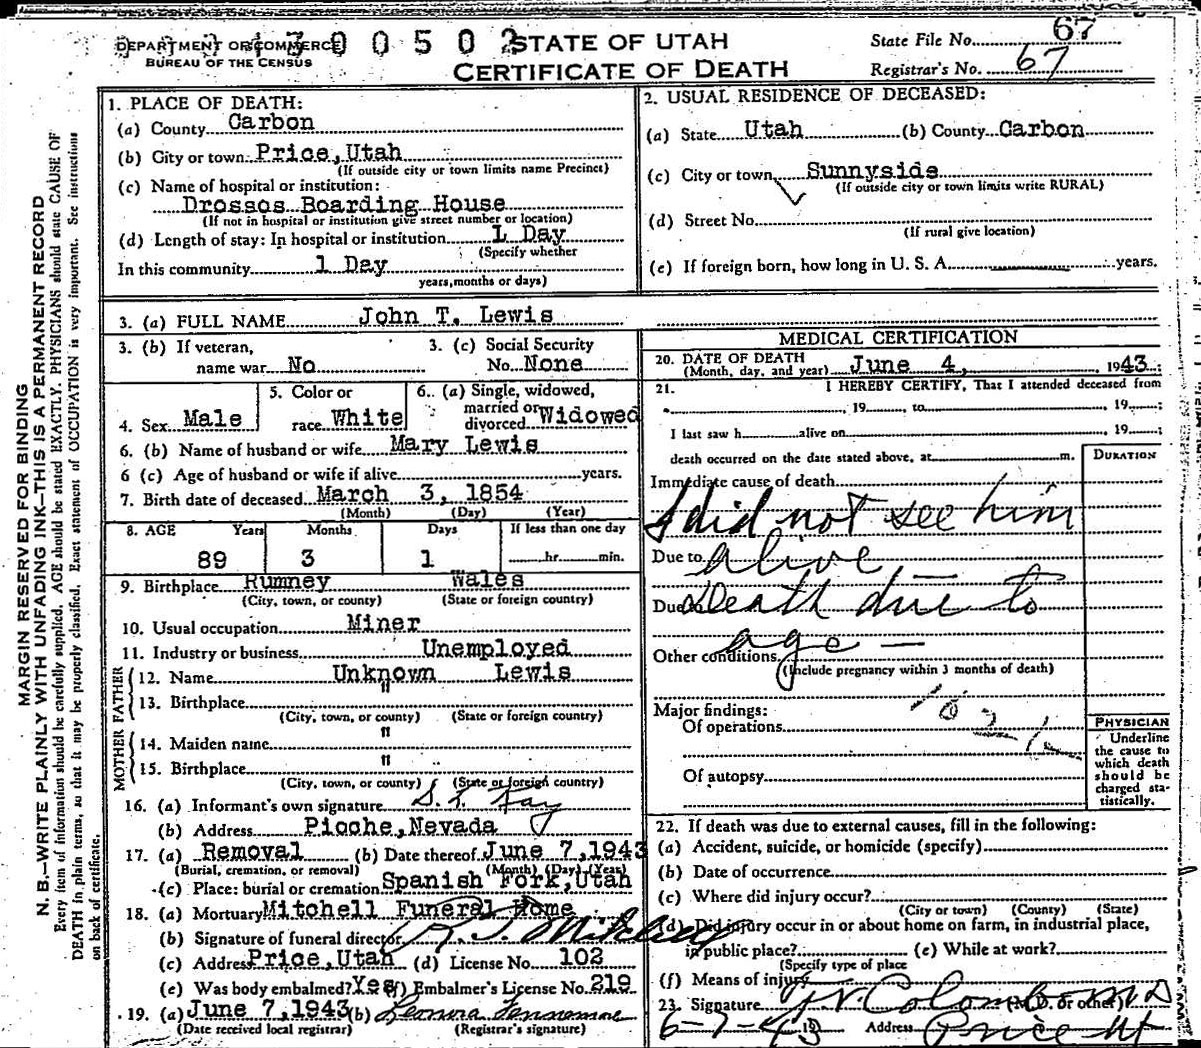 DEPARTMENT OF COMMERCE
BUREAU OF THE CENSUS
STATE OF UTAH
CERTIFICATE OF DEATH
State File No. 67
Registrar's No. 67
MARGIN RESERVED FOR BINDING
N. B.—WRITE PLAINLY WITH UNFADING INK—THIS IS A PERMANENT RECORD
Every item of information should be carefully supplied. AGE should be stated EXACTLY. PHYSICIANS should state CAUSE OF
DEATH in plain terms, so that it may be properly classified. Exact statement of OCCUPATION is very important. See instructions
on back of certificate.
1. PLACE OF DEATH:
(a) County Carbon
(b) City or town Price, Utah
(If outside city or town limits name Precinct)
(c) Name of hospital or institution:
Drossos Boarding House
(If not in hospital or institution give street number or location)
(d) Length of stay: In hospital or institution 1 Day
(Specify whether
In this community 1 Day
years, months or days)
2. USUAL RESIDENCE OF DECEASED:
(a) State Utah (b) County Carbon
(c) City or town Sunnyside
(If outside city or town limits write RURAL)
(d) Street No.
(If rural give location)
(e) If foreign born, how long in U. S. A. years.
3. (a) FULL NAME John T. Lewis
3. (b) If veteran, 3. (c) Social Security
name war No No. None
4. Sex Male
5. Color or
race White
6. (a) Single, widowed,
married or
divorced Widowed
6. (b) Name of husband or wife Mary Lewis
6 (c) Age of husband or wife if alive years.
7. Birth date of deceased March 3, 1854
(Month) (Day) (Year)
8. AGE Years Months Days If less than one day
89 3 1 hr. min.
9. Birthplace Rumney Wales
(City, town, or county) (State or foreign country)
10. Usual occupation Miner
11. Industry or business Unemployed
FATHER
12. Name Unknown Lewis
13. Birthplace "
(City, town, or county) (State or foreign country)
MOTHER
14. Maiden name "
15. Birthplace "
(City, town, or county) (State or foreign country)
16. (a) Informant's own signature
(b) Address Pioche, Nevada
17. (a) Removal (b) Date thereof June 7, 1943
(Burial, cremation, or removal) (Month) (Day) (Year)
(c) Place: burial or cremation Spanish Fork, Utah
18. (a) Mortuary Mitchell Funeral Home
(b) Signature of funeral director R. J. Mitchell
(c) Address Price, Utah (d) License No. 102
(e) Was body embalmed? Yes (f) Embalmer's License No. 219
19. (a) June 7, 1943 (b) Leonora
(Date received local registrar) (Registrar's signature)
MEDICAL CERTIFICATION
20. DATE OF DEATH
(Month, day, and year) June 4, 1943
21. I HEREBY CERTIFY, That I attended deceased from
, 19 , to , 19 ;
I last saw h alive on , 19 ;
death occurred on the date stated above, at m.
DURATION
Immediate cause of death
I did not see him
Due to alive —
Due to Death due to
age —
Other conditions
(Include pregnancy within 3 months of death)
Major findings:
Of operations
Of autopsy
PHYSICIAN
Underline
the cause to
which death
should be
charged sta-
tistically.
22. If death was due to external causes, fill in the following:
(a) Accident, suicide, or homicide (specify)
(b) Date of occurrence
(c) Where did injury occur?
(City or town) (County) (State)
(d) Did injury occur in or about home on farm, in industrial place,
in public place? (e) While at work?
(Specify type of place
(f) Means of injury
23. Signature Colombo M D (M. D. or other)
6-7-43 19 Address Price Ut